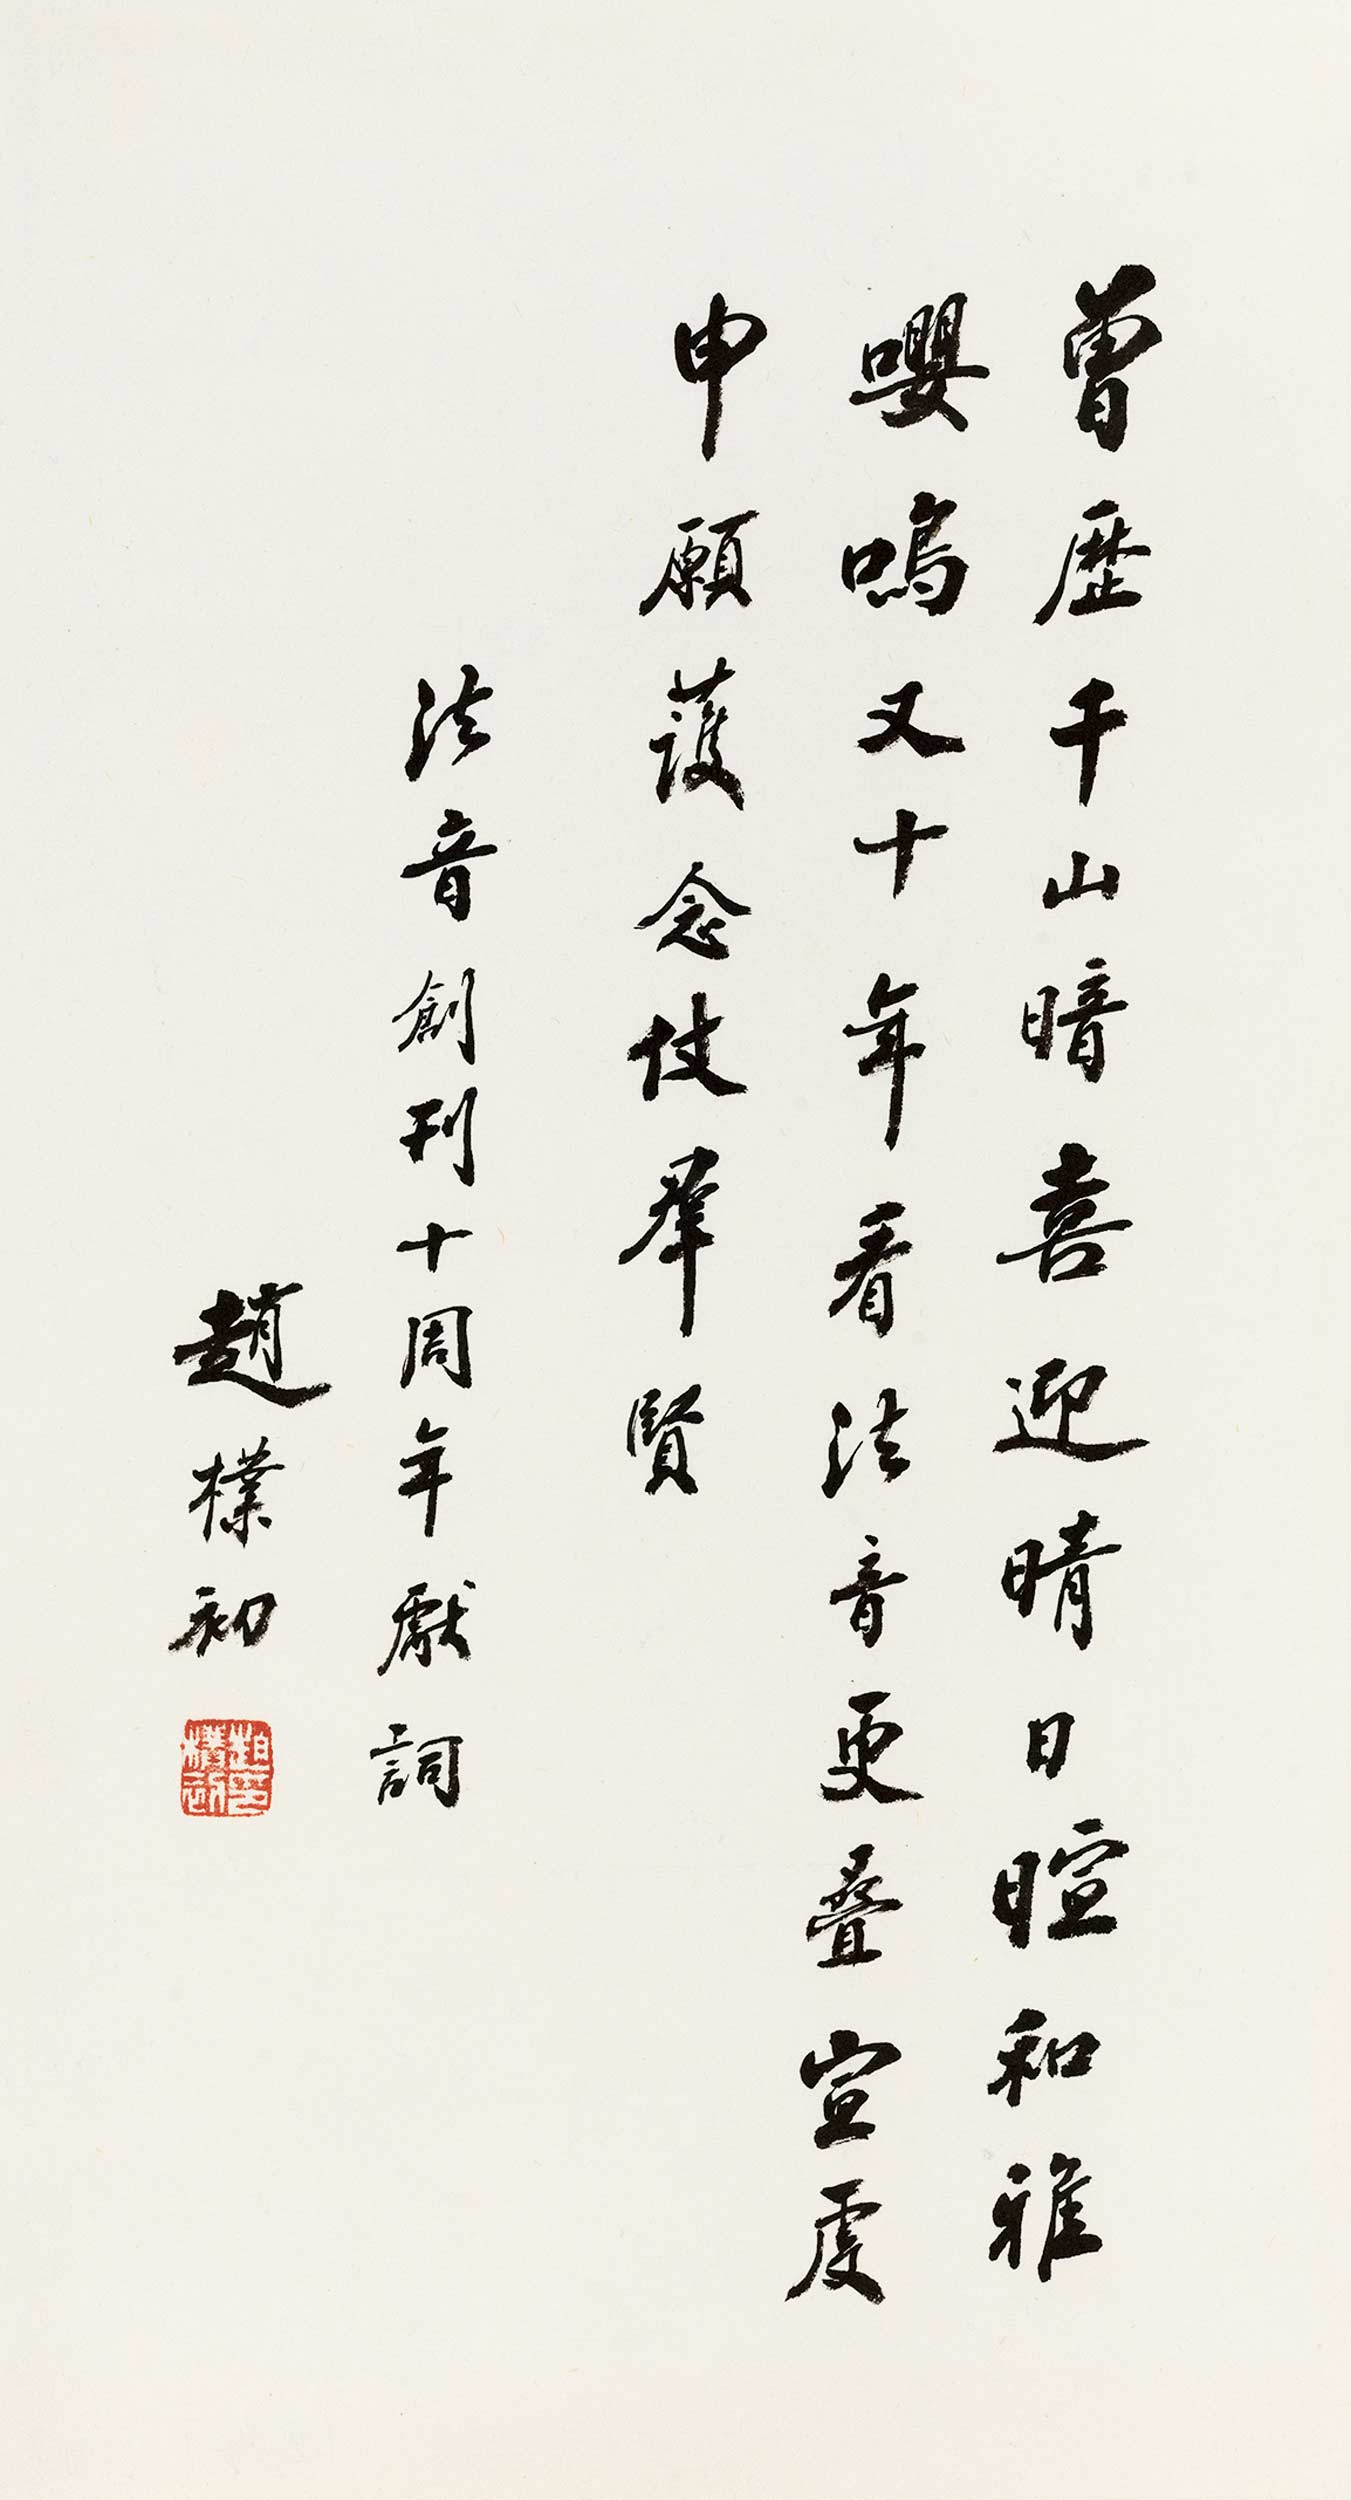 曾歷千山暗喜迎晴日暄和雅
嚶鳴又十年看法音更疊宣虔
申願護念仗羣賢
法音創刊十周年獻詞
趙樸初
趙樸初印